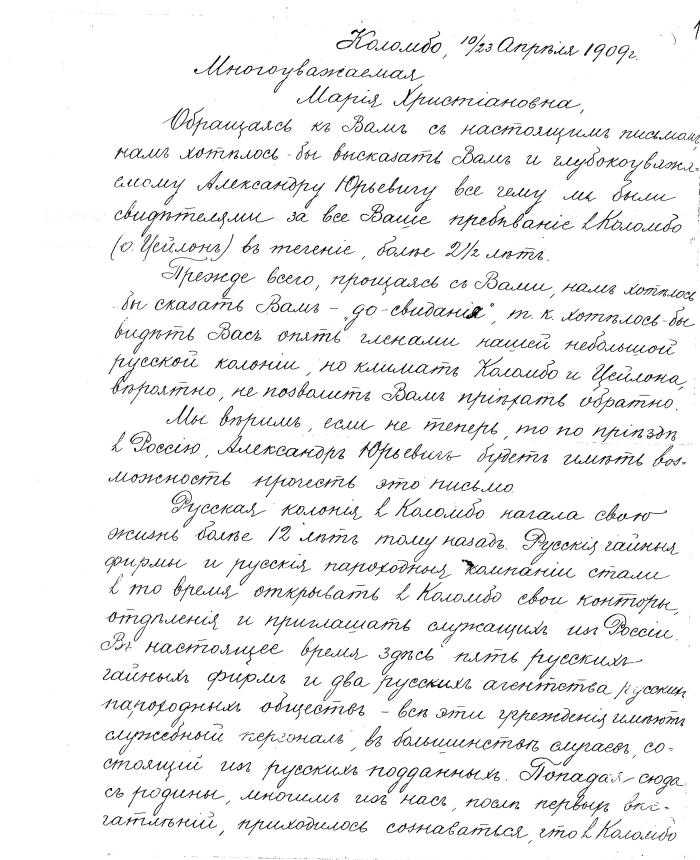 1
Коломбо, 10/23 Апрѣля 1909 г.
Многоуважаемая
Марія Христіановна,
Обращаясь къ Вамъ съ настоящимъ письмомъ,
намъ хотѣлось-бы высказать Вамъ и глубокоуважа-
емому Александру Юрьевичу все чему мы были
свидѣтелями за все Ваше пребываніе въ Коломбо
(о. Цейлонъ) въ теченіе, болѣе 2 1/2 лѣтъ.
Прежде всего, прощаясь съ Вами, намъ хотѣлось
бы сказать Вамъ – „до-свиданія", т к. хотѣлось-бы
видѣть Васъ опять членами нашей небольшой
русской колоніи, но климатъ Коломбо и Цейлона,
вѣроятно, не позволитъ Вамъ пріѣхать обратно.
Мы вѣримъ, если не теперь, то по пріѣздѣ
въ Россію, Александръ Юрьевичъ будетъ имѣть воз-
можность прочесть это письмо
Русская колонія въ Коломбо начала свою
жизнь болѣе 12 лѣтъ тому назадъ. Русскія чайныя
фирмы и русскія пароходныя компаніи стали
въ то время открывать въ Коломбо свои конторы,
отдѣленія и приглашать служащихъ изъ Россіи.
Въ настоящее время здѣсь пять русскихъ
чайныхъ фирмъ и два русскихъ агентства русскихъ
пароходныхъ обществъ – всѣ эти учрежденія имѣютъ
служебный персоналъ, въ большинствѣ случаевъ, со-
стоящій изъ русскихъ подданныхъ. Попадая сюда
съ родины, многимъ изъ насъ, послѣ первыхъ впе-
чатлѣній, приходилось сознаваться, что въ Коломбо